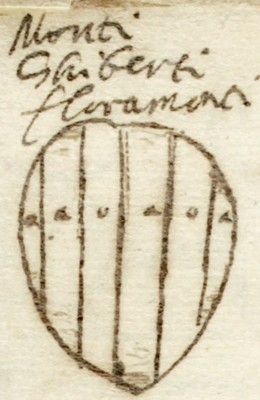 Monti
Ghiberti
floramonti
a a o a o a